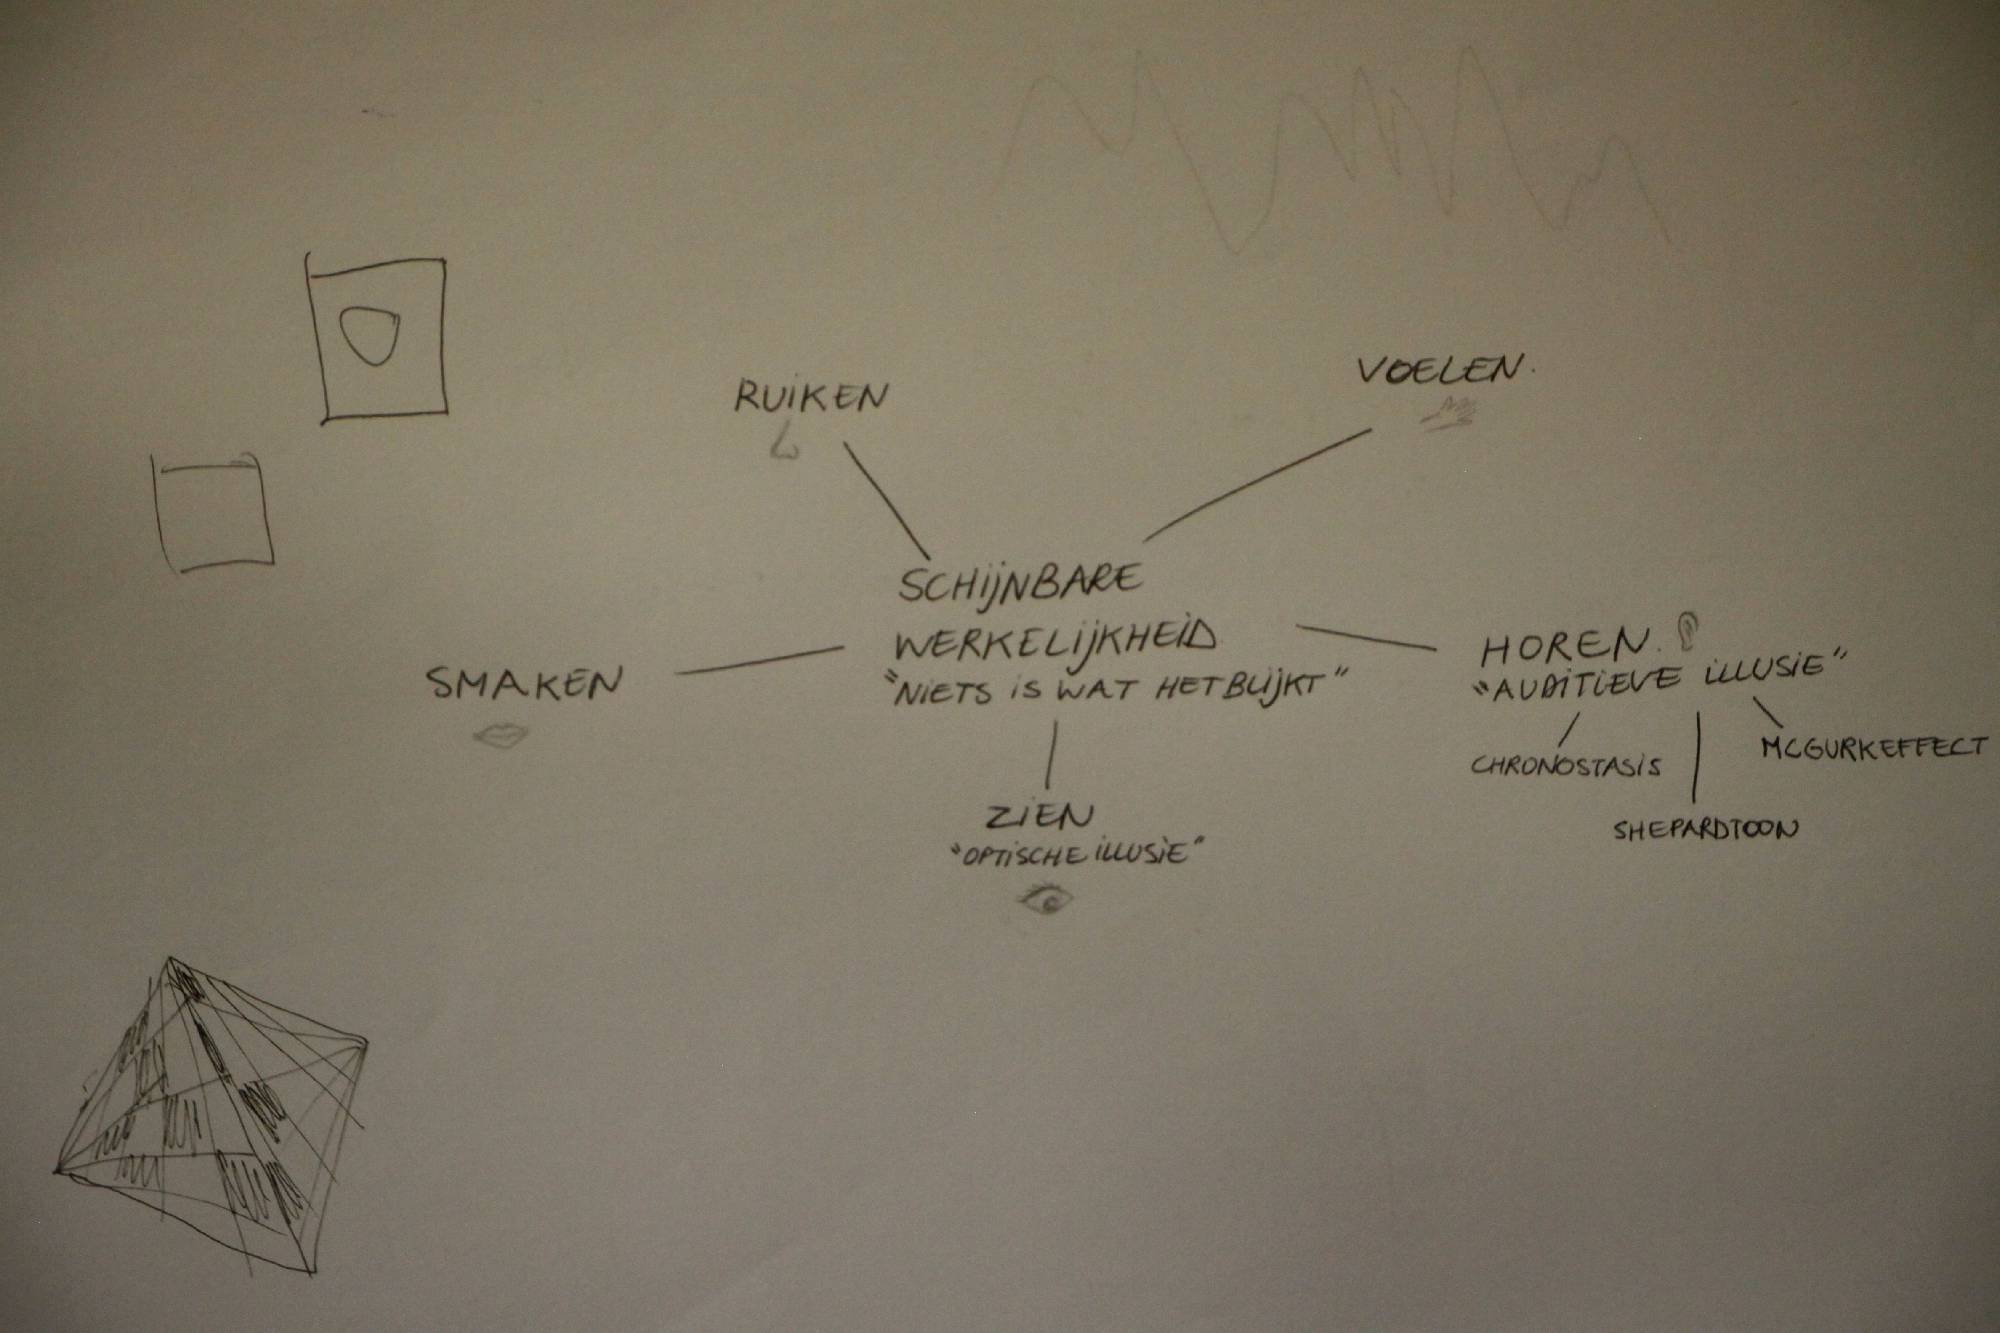 RUiKEN
VOELEN.
SCHijNBARE
WERKELijKHEiD
"NiETS iS WAT HET BLijKT"
SMAKEN
HOREN.
"AUDiTiEVE iLLUSiE"
CHRONOSTASiS
MCGURKEFFECT
SHEPARDTOON
ZiEN
"OPTiSCHE iLLUSiE"